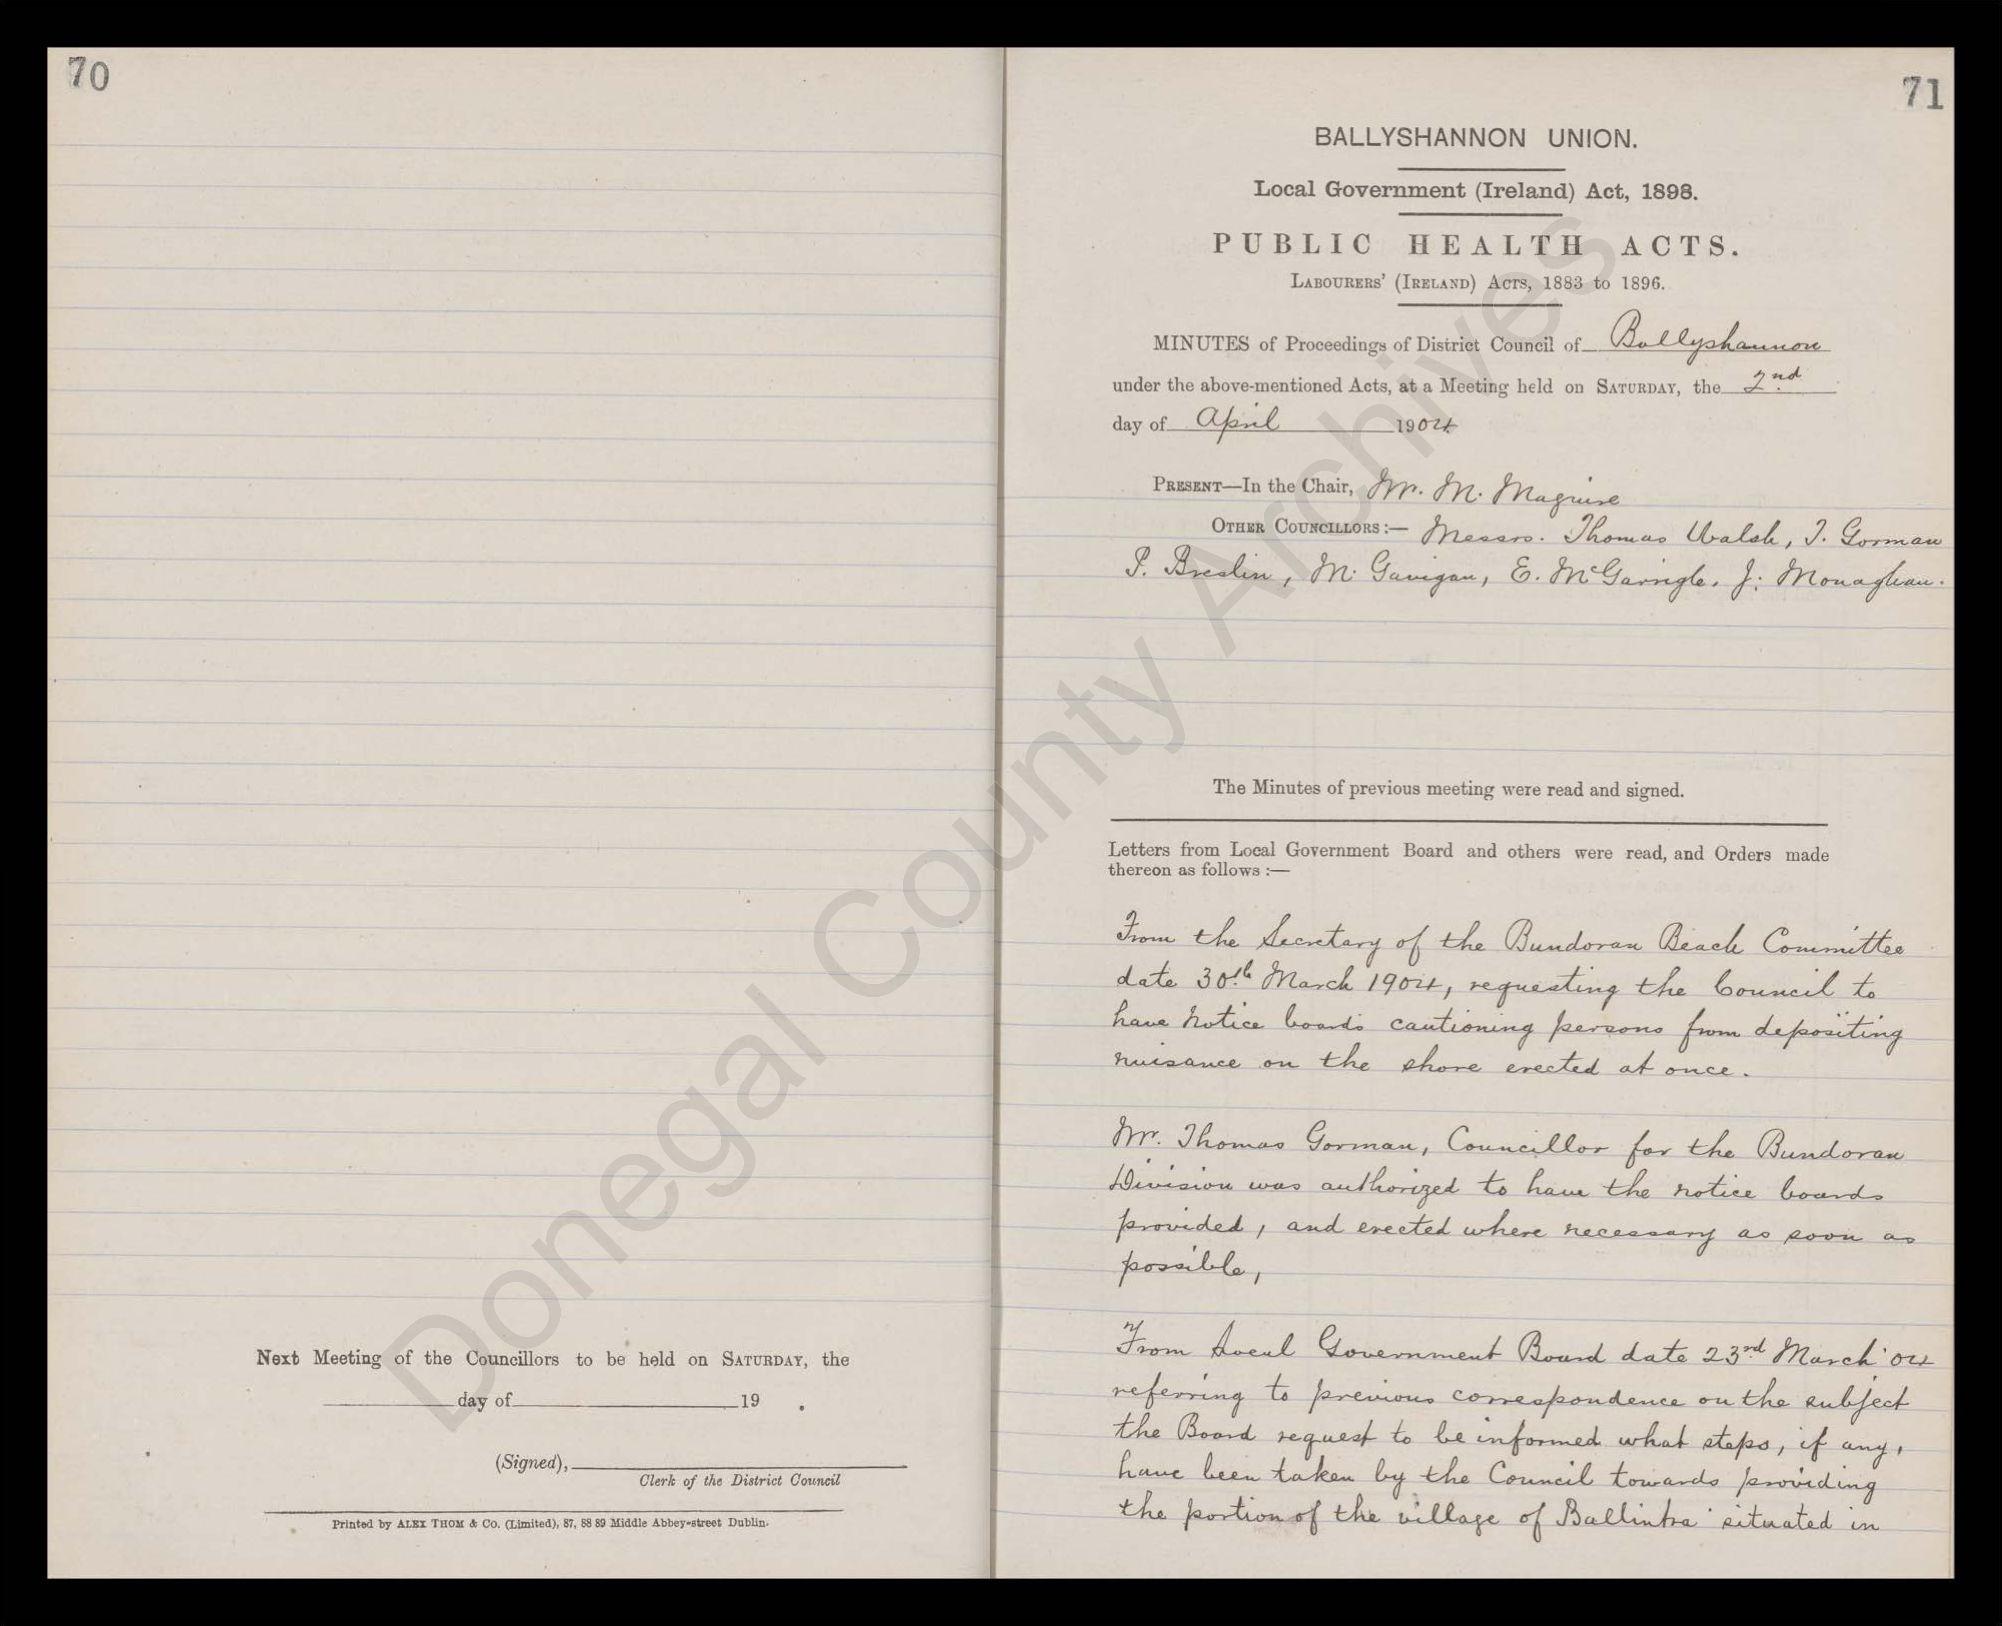 70
Next Meeting of the Councillors to be held on SATURDAY, the
day of 19 .
(Signed),
Clerk of the District Council
Printed by ALEX THOM & Co. (Limited), 87, 88 89 Middle Abbey-street Dublin.
71
BALLYSHANNON UNION.
Local Government (Ireland) Act, 1898.
PUBLIC HEALTH ACTS.
LABOURERS' (IRELAND) ACTS, 1883 to 1896.
MINUTES of Proceedings of District Council of Ballyshannon
under the above-mentioned Acts, at a Meeting held on SATURDAY, the 2nd
day of April 1904
PRESENT—In the Chair, Mr. M. Maguire
OTHER COUNCILLORS:— Messrs. Thomas Walsh, T. Gorman
P. Breslin, M. Gavigan, E. McGarrigle. J. Monaghan.
The Minutes of previous meeting were read and signed.
Letters from Local Government Board and others were read, and Orders made
thereon as follows :—
From the Secretary of the Bundoran Beach Committee
date 30th March 1904, requesting the Council to
have Notice boards cautioning persons from depositing
nuisance on the shore erected at once.
Mr. Thomas Gorman, Councillor for the Bundoran
Division was authorized to have the notice boards
provided, and erected where necessary as soon as
possible,
From Local Government Board date 23rd March '04
referring to previous correspondence on the subject
the Board request to be informed what steps, if any,
have been taken by the Council towards providing
the portion of the village of Ballintra situated in
Donegal County Archives